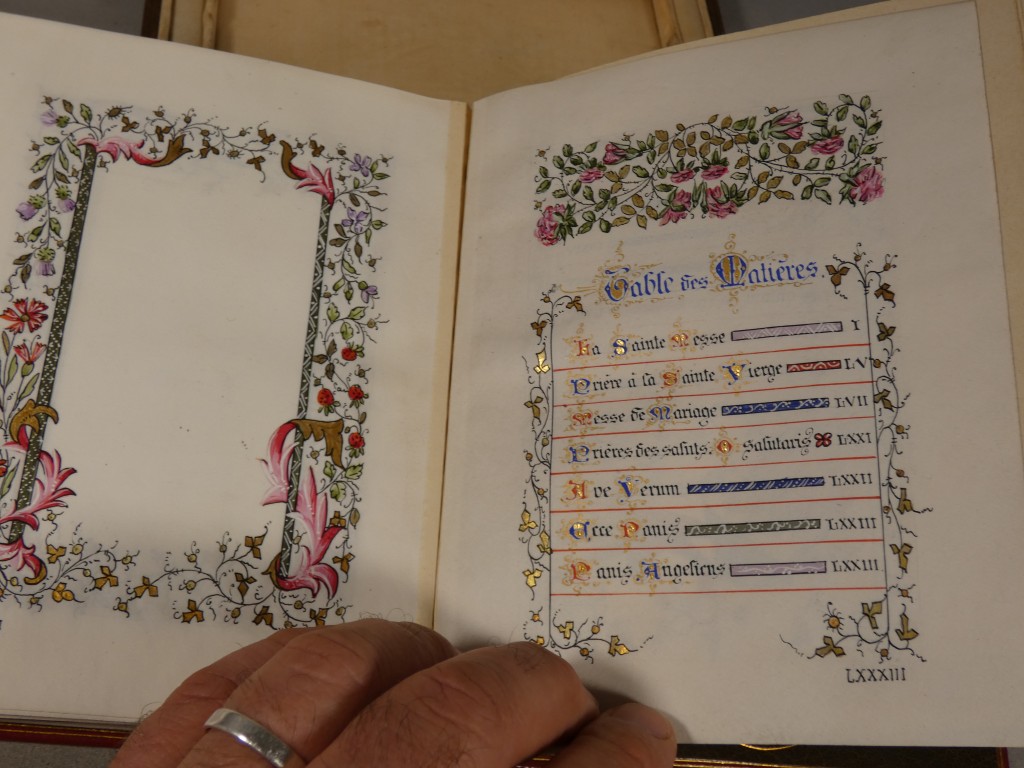 Table des Matières.
La Sainte Messe I
Prière à la Sainte Vierge LV
Messe de Mariage LVII
Prières des saluts. O Salutaris LXXI
Ave Verum LXXII
Ecce Panis LXXIII
Panis Angeliens LXXIII
LXXXIII